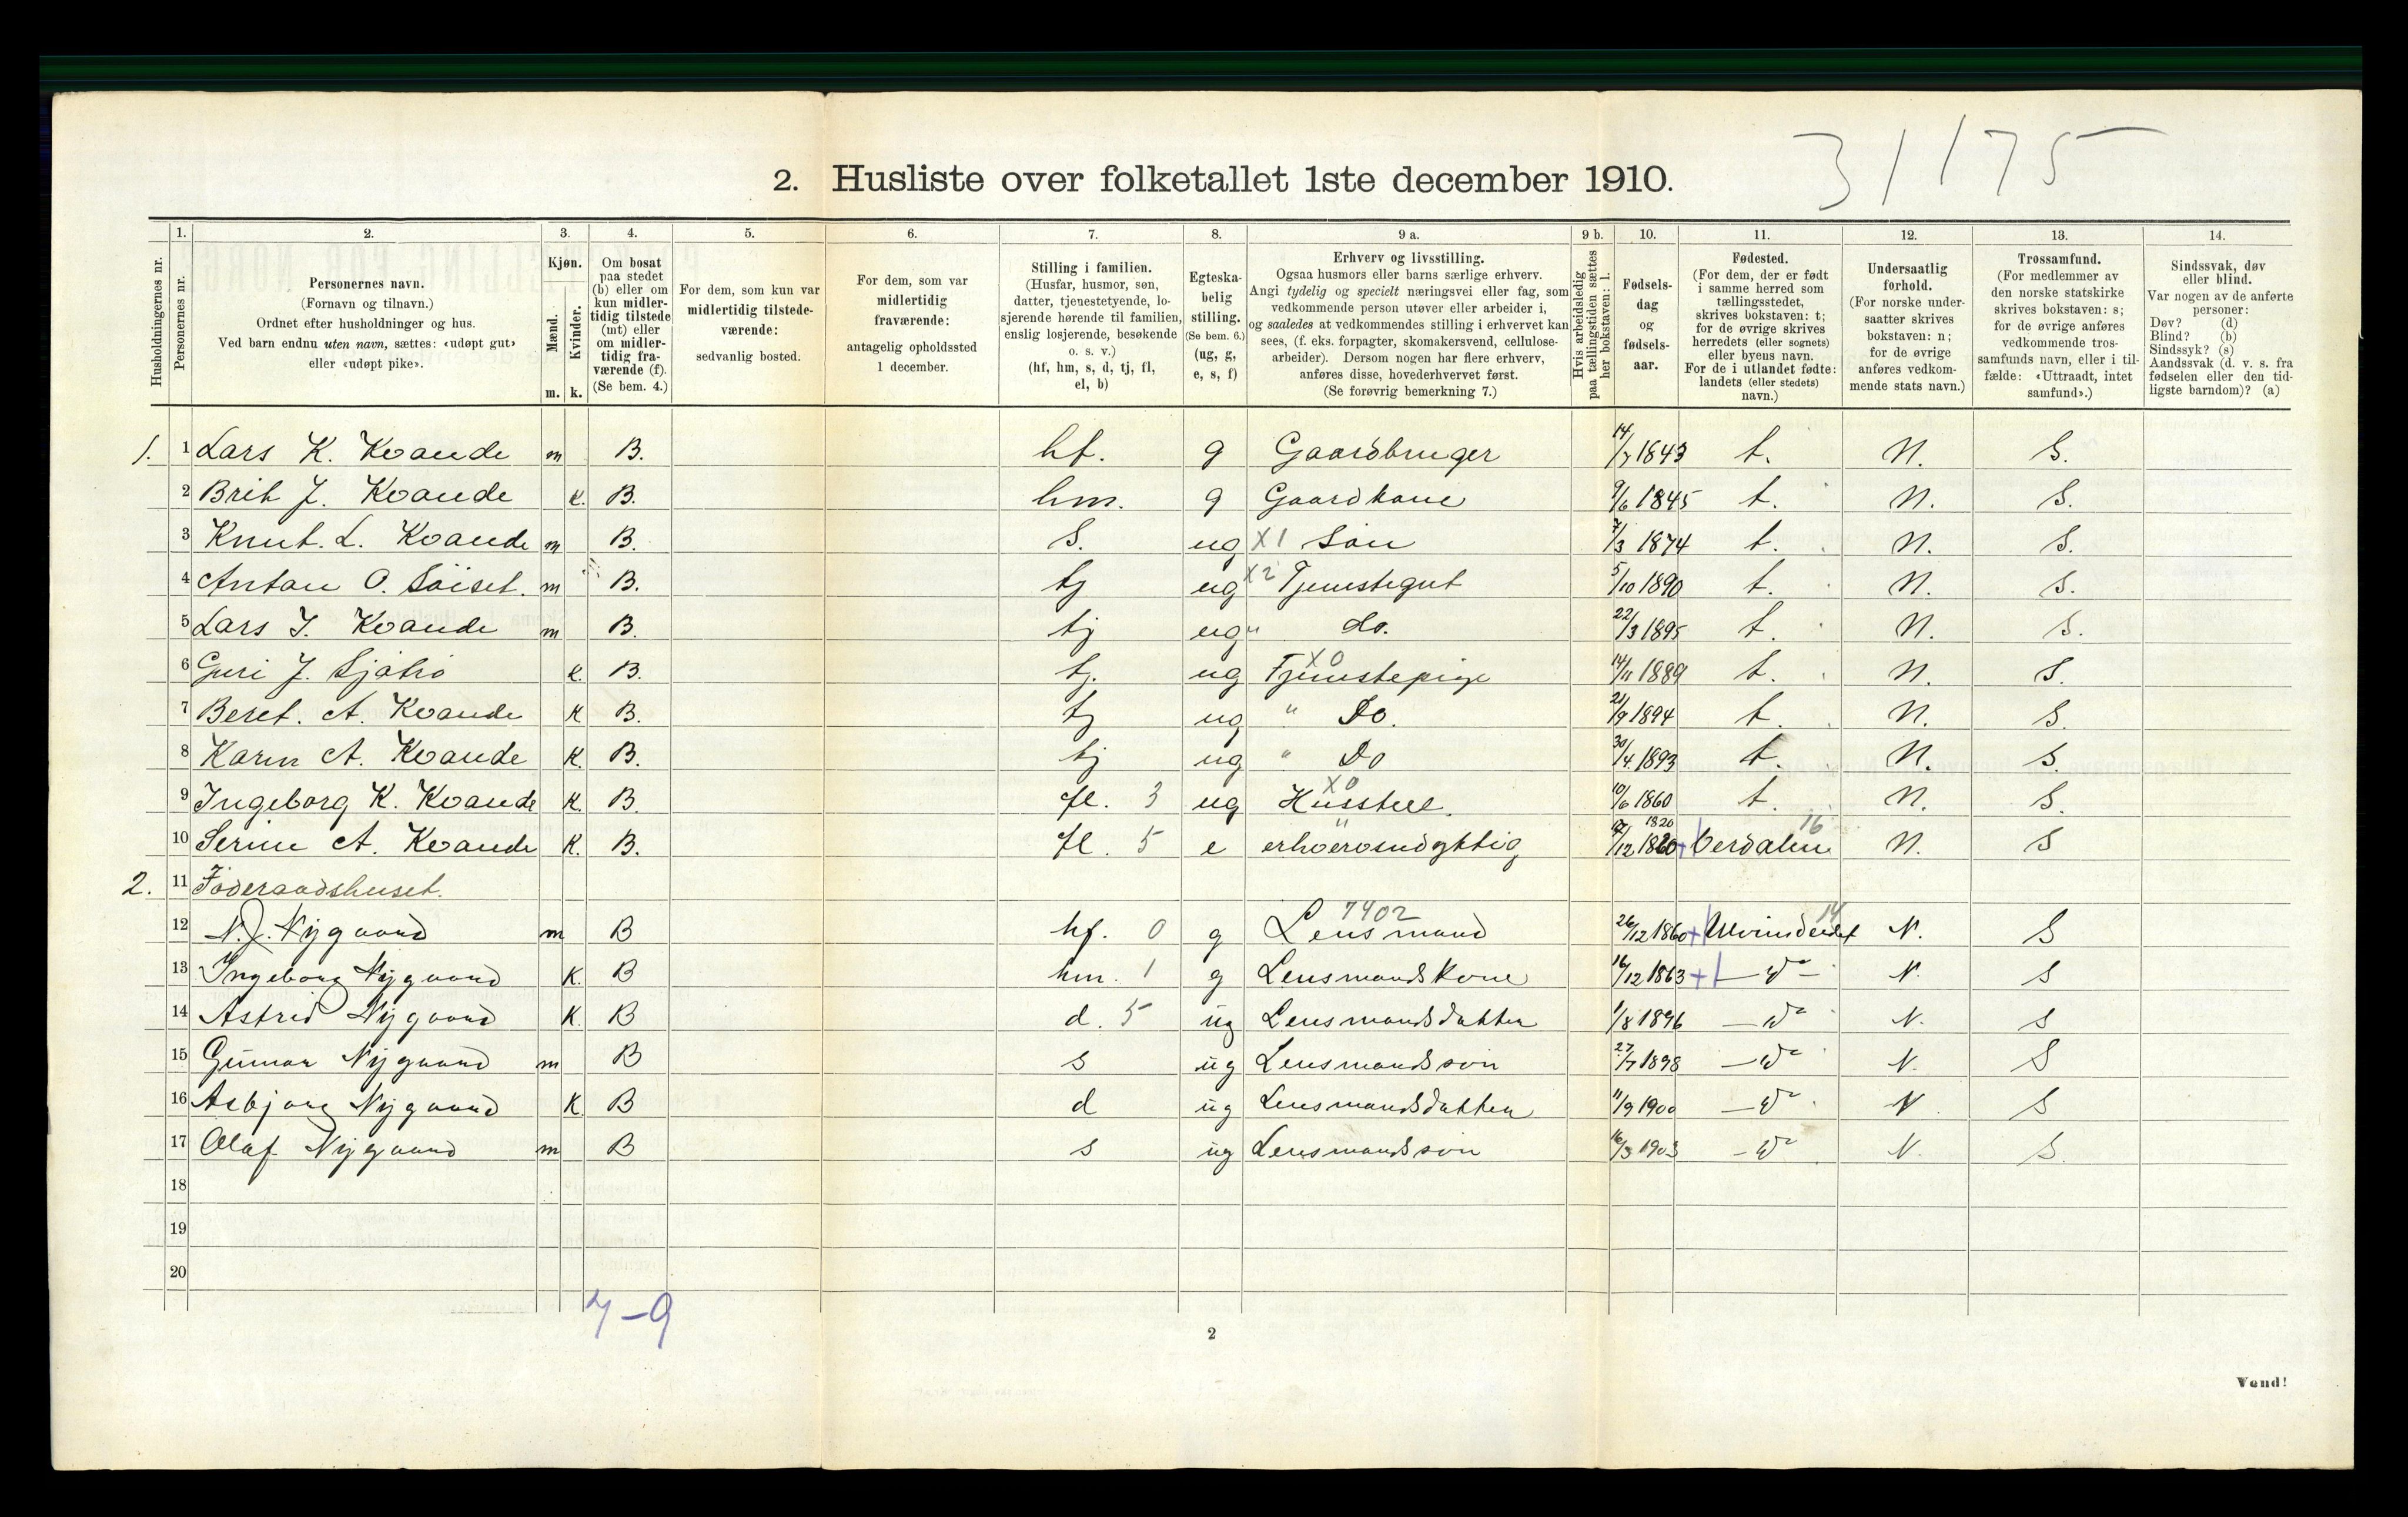 31175
2. Husliste over folketallet 1ste december 1910.
Husholdningernes nr.
1.
Personernes nr.
2.
Personernes navn.
(Fornavn og tilnavn.)
Ordnet efter husholdninger og hus.
Ved barn endnu uten navn, sættes: «udøpt gut»
eller «udøpt pike».
3.
Kjøn.
Mænd.
Kvinder.
m. k.
4.
Om bosat
paa stedet
(b) eller om
kun midler-
tidig tilstede
(mt) eller
om midler-
tidig fra-
værende (f).
(Se bem. 4.)
5.
For dem, som kun var
midlertidig tilstede-
værende:
sedvanlig bosted.
6.
For dem, som var
midlertidig
fraværende:
antagelig opholdssted
1 december.
7.
Stilling i familien.
(Husfar, husmor, søn,
datter, tjenestetyende, lo-
sjerende hørende til familien,
enslig losjerende, besøkende
o. s. v.)
(hf, hm, s, d, tj, fl,
el, b)
8.
Egteska-
belig
stilling.
(Se bem. 6.)
(ug, g,
e, s, f)
9 a.
Erhverv og livsstilling.
Ogsaa husmors eller barns særlige erhverv.
Angi tydelig og specielt næringsvei eller fag, som
vedkommende person utøver eller arbeider i,
og saaledes at vedkommendes stilling i erhvervet kan
sees, (f. eks. forpagter, skomakersvend, cellulose-
arbeider). Dersom nogen har flere erhverv,
anføres disse, hovederhvervet først.
(Se forøvrig bemerkning 7.)
9 b.
Hvis arbeidsledig
paa tællingstiden sættes
her bokstaven: l.
10.
Fødsels-
dag
og
fødsels-
aar.
11.
Fødested.
(For dem, der er født
i samme herred som
tællingsstedet,
skrives bokstaven: t;
for de øvrige skrives
herredets (eller sognets)
eller byens navn.
For de i utlandet fødte:
landets (eller stedets)
navn.)
12.
Undersaatlig
forhold.
(For norske under-
saatter skrives
bokstaven: n;
for de øvrige
anføres vedkom-
mende stats navn.)
13.
Trossamfund.
(For medlemmer av
den norske statskirke
skrives bokstaven: s;
for de øvrige anføres
vedkommende tros-
samfunds navn, eller i til-
fælde: «Uttraadt, intet
samfund».)
14.
Sindssvak, døv
eller blind.
Var nogen av de anførte
personer:
Døv? (d)
Blind? (b)
Sindssyk? (s)
Aandssvak (d. v. s. fra
fødselen eller den tid-
ligste barndom)? (a)
1. 1 Lars K. Kvande m B. hf. g Gaardbruger 14/7 1843 t. N. S.
2 Brit J. Kvande k. B. hm. g Gaardkone 9/6 1845 t. N. S.
3 Knut. L. Kvande m B. S. ug X1 Søn 7/3 1874 t. N. S.
4 Anton O. Søiset. m B. tj ug X2 Tjenestegut 5/10 1890 t. N. S.
5 Lars J. Kvande m B. tj ug " do. 22/3 1895 t. N. S.
6 Guri J. Sjøtrø k. B. tj. ug X0 Tjenestepige 14/11 1889 t. N. S.
7 Beret. A. Kvande K B. tj ug " Do. 21/9 1894 t. N. S.
8 Karen A. Kvande K. B. tj ug " Do 30/4 1893 t. N. S.
9 Ingeborg K. Kvande K. B. fl. 3 ug X0 Husstell. 10/6 1860 t. N. S.
10 Serine A. Kvande K. B. fl. 5 e erhvervsudygtig 1820 /12 1820 + Verdalen 16 N. S
2. 11 Føderaadshuset.
12 N. J. Nygaard m B hf. 0 g Lensmand 7402 26/12 1860 + 14 N. S
13 Ingeborg Nygaard K. B hm. 1 g Lensmandskone 16/12 1863 + — do — N. S
14 Astrid Nygaard K. B d. 5 ug Lensmandsdatter 1/8 1896 — do N. S
15 Gunnar Nygaard m B s ug Lensmandssøn 27/7 1898 — do N. S
16 Asbjørg Nygaard K B d ug Lensmandsdatter 11/9 1900 — do N. S
17 Olaf Nygaard m B s ug Lensmandssøn 16/3 1903 — do N. S.
18
19
20
7-9
2
Vend!